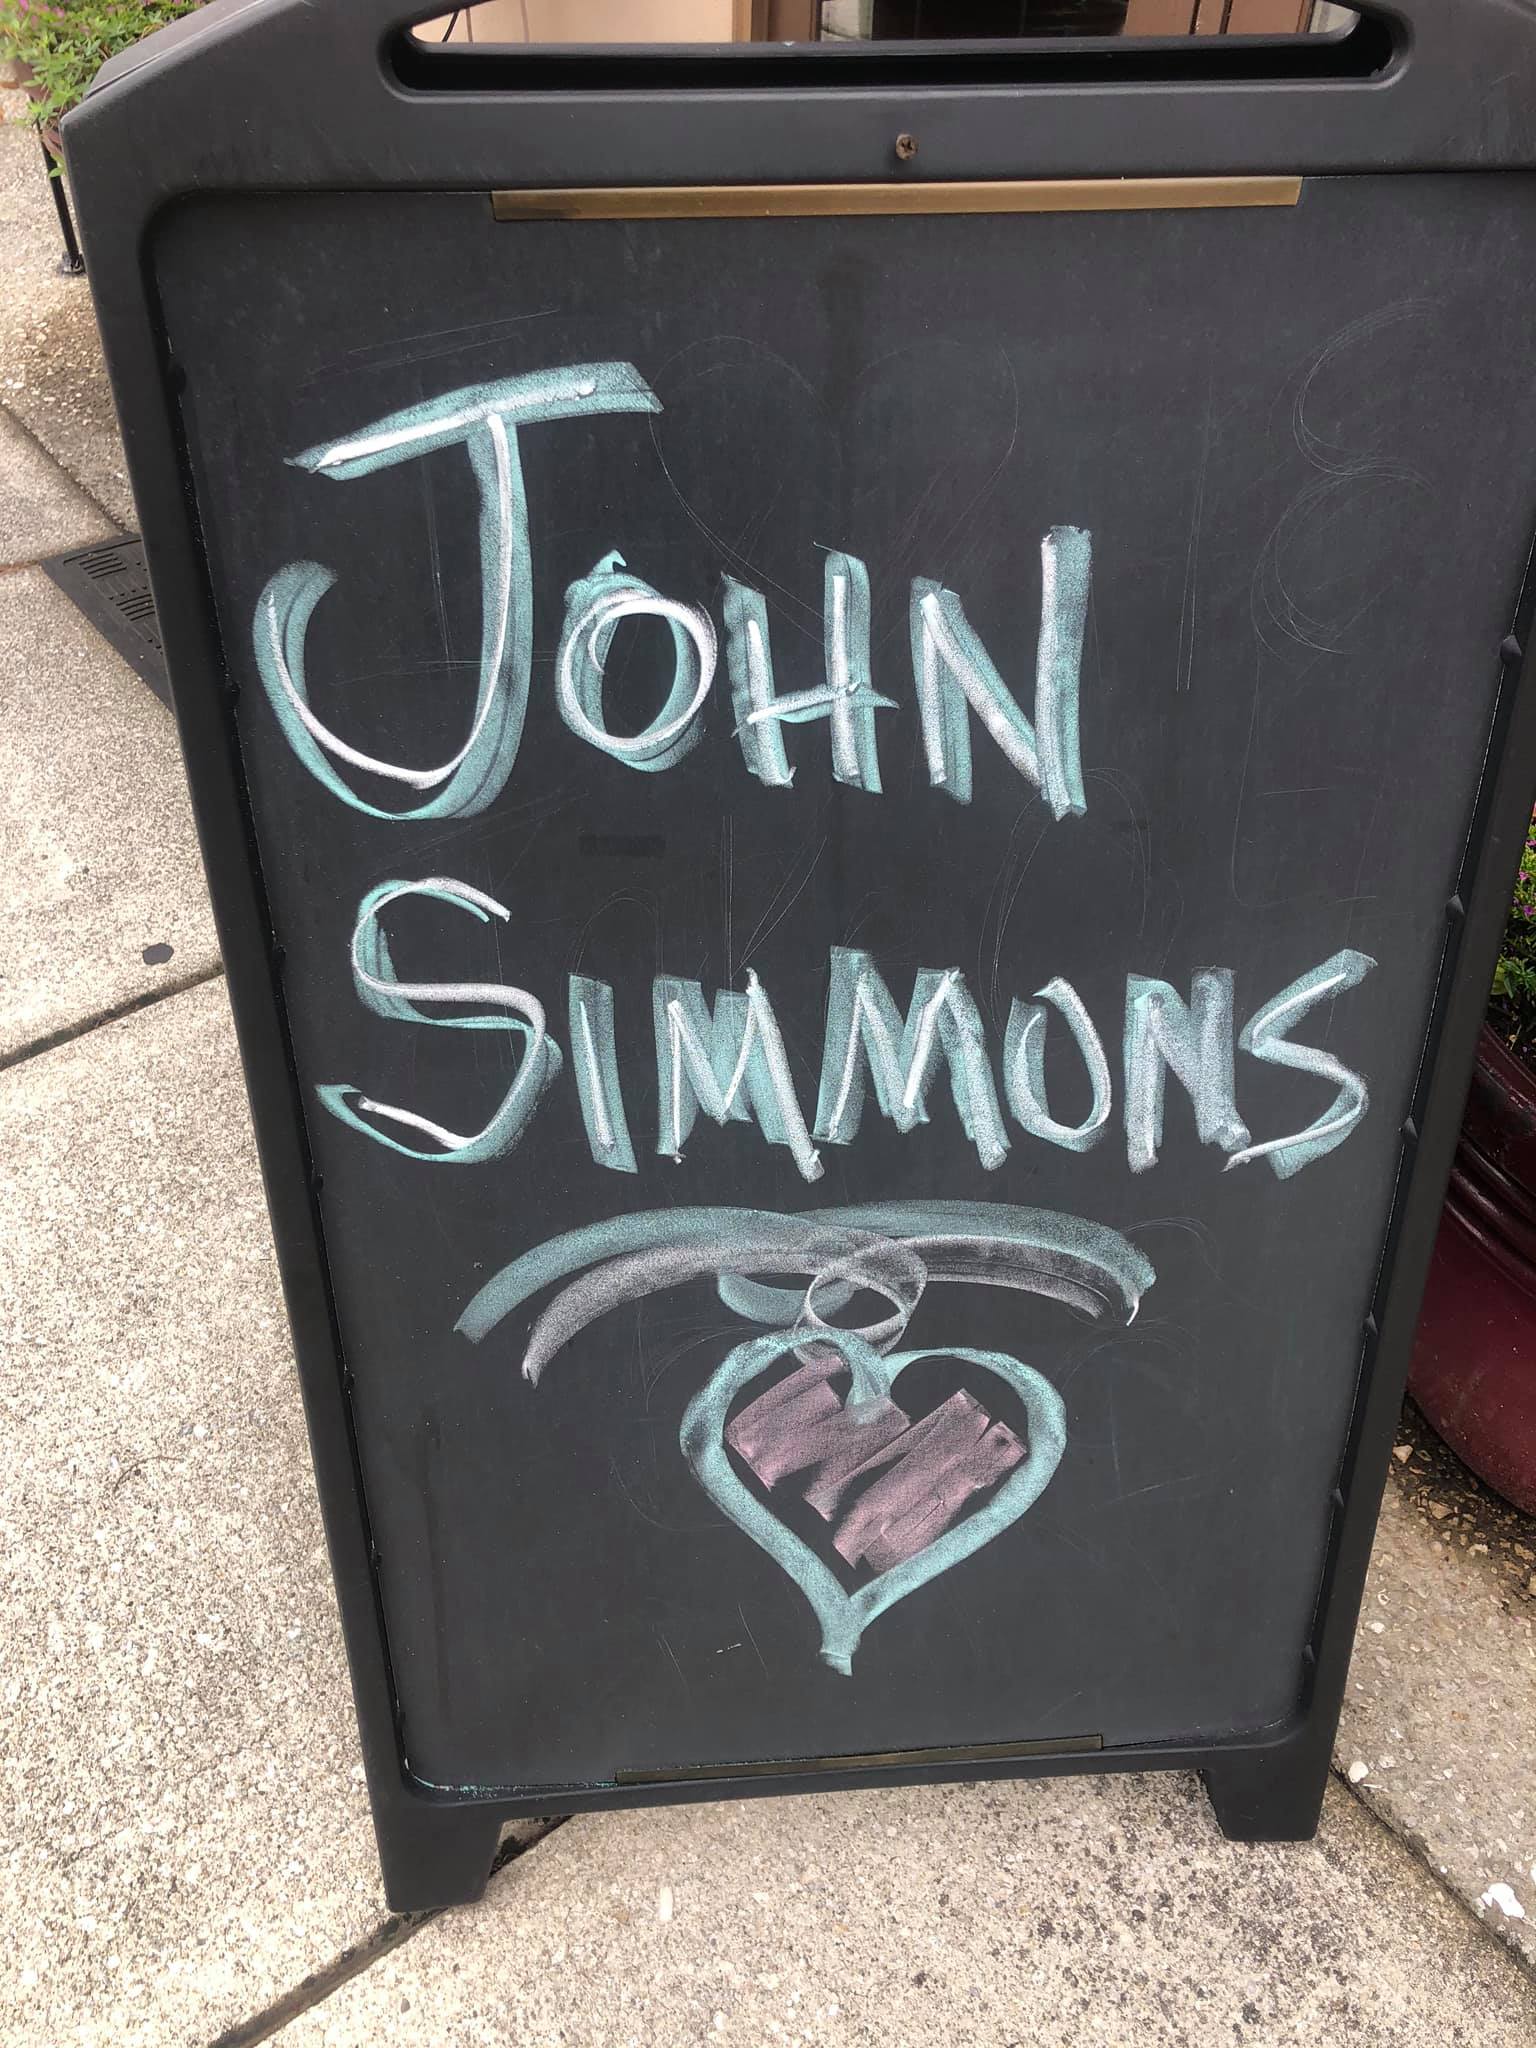 JOHN
SIMMONS